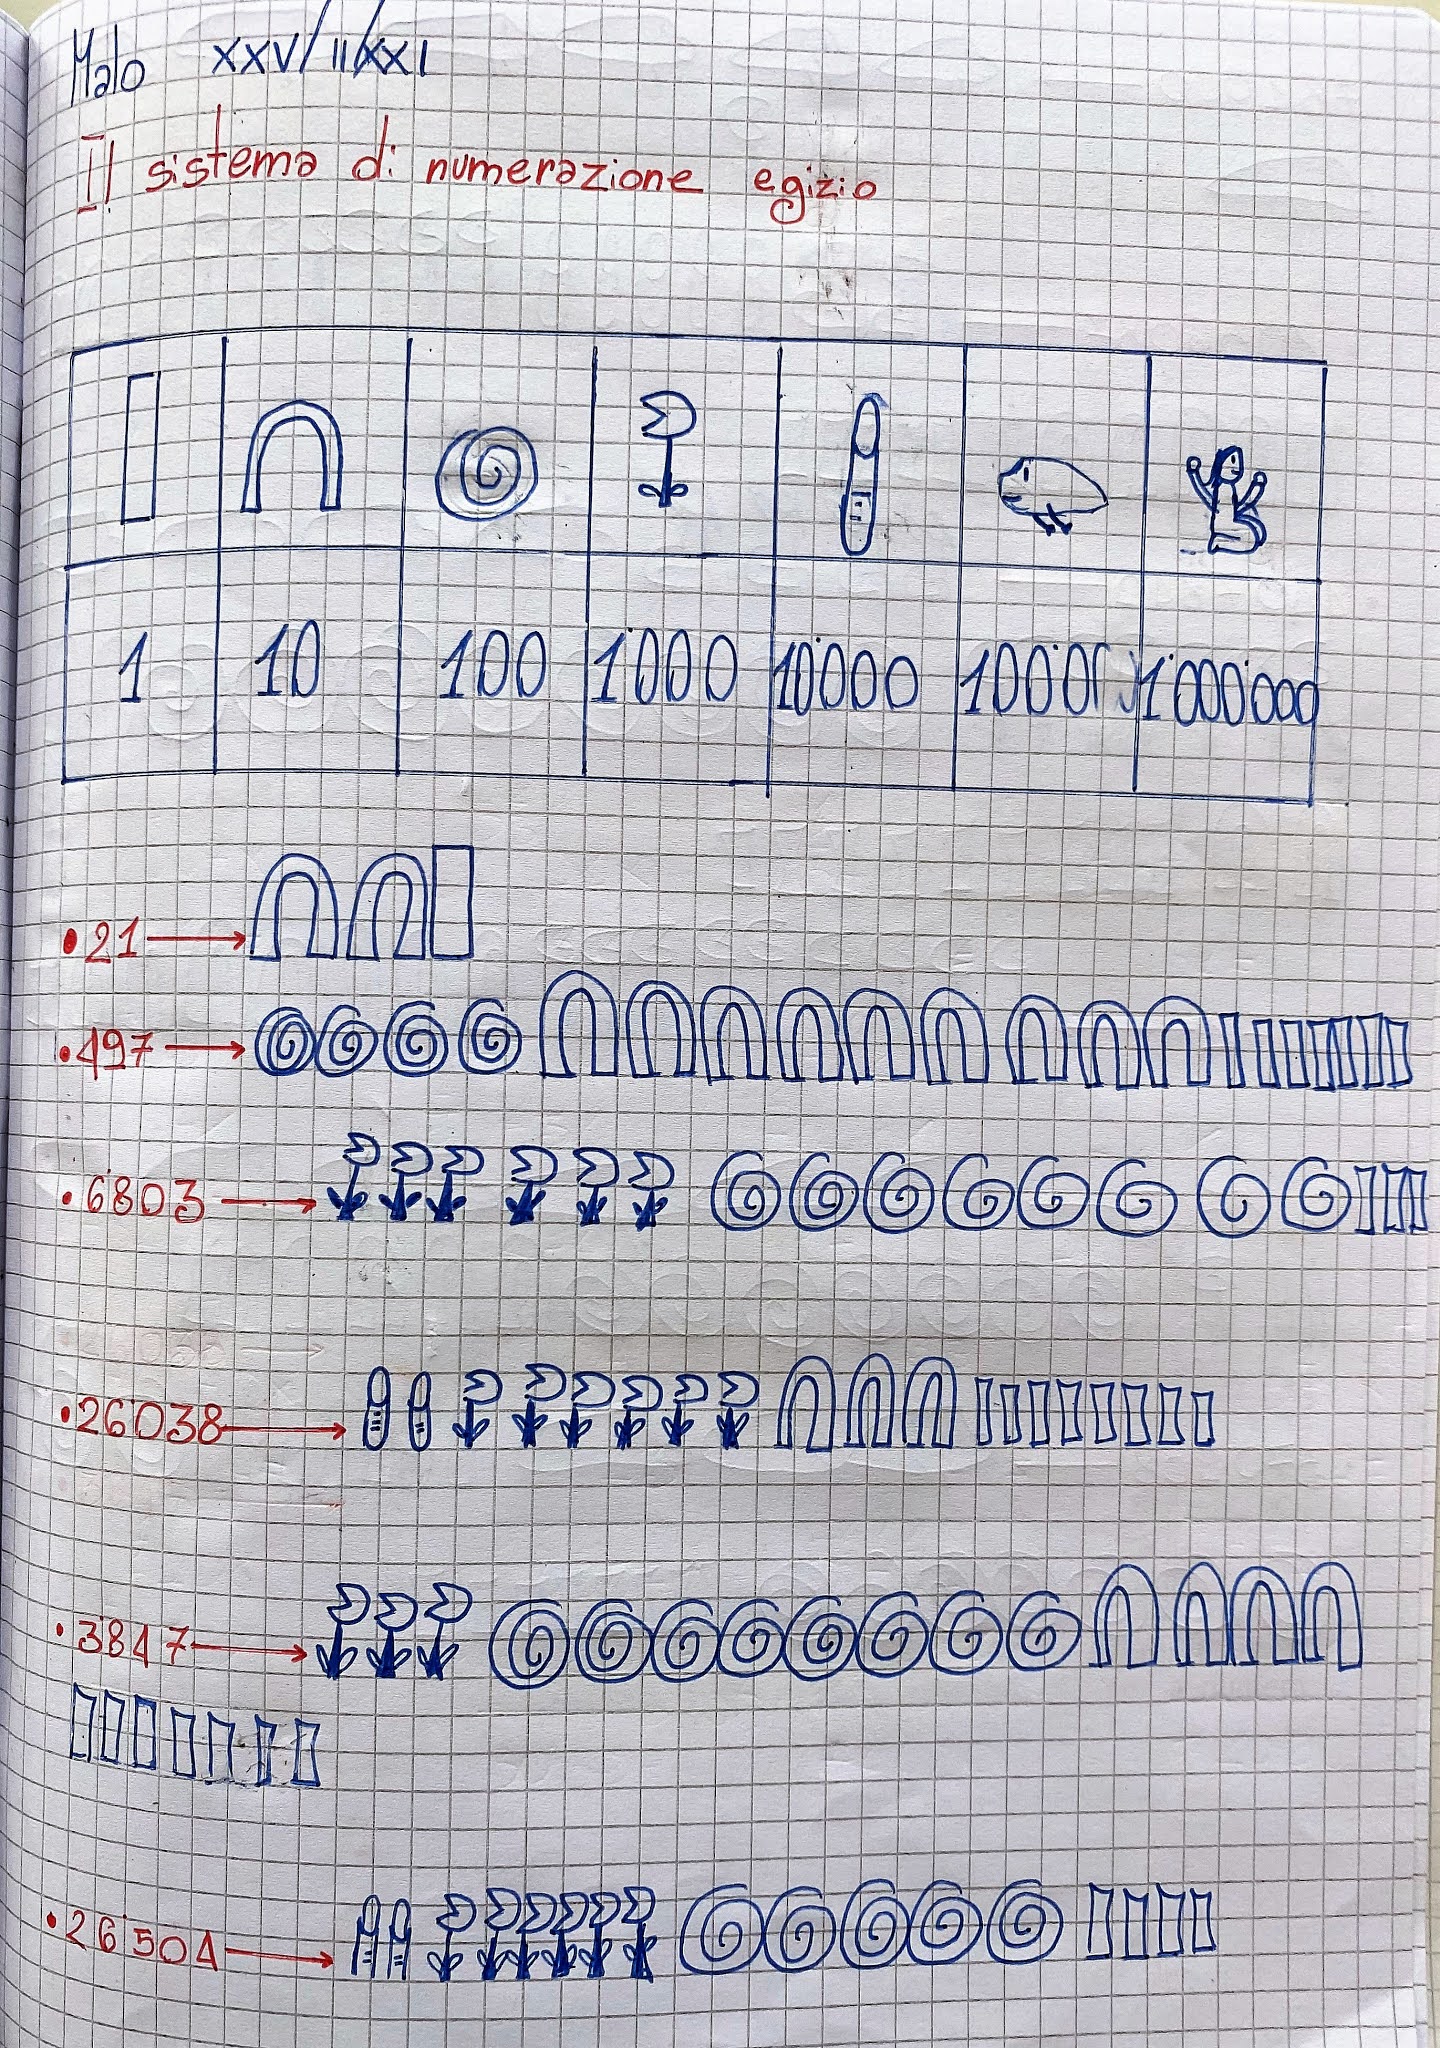 Malo XXV/II/XXI
Il sistema di numerazione egizio
1 10 100 1000 10000 1'000000
•21
•497
•6803
•26038
•3847
•26504